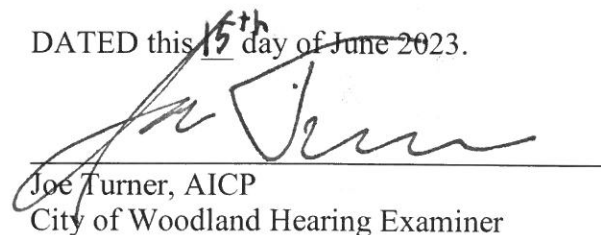 DATED this 15th day of June 2023.
Joe Turner
Joe Turner, AICP
City of Woodland Hearing Examiner